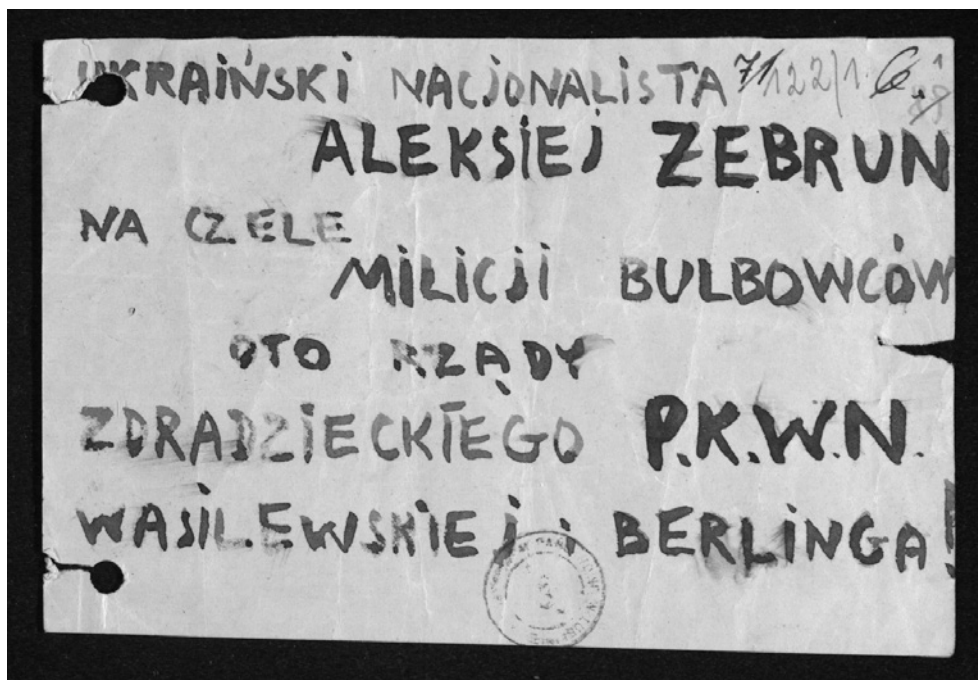 UKRAIŃSKI NACJONALISTA 71/122/1
ALEKSIEJ ZEBRUN
NA CZELE
MILICJI BULBOWCÓW
OTO RZĄDY
ZDRADZIECKIEGO P.K.W.N.
WASILEWSKIEJ i BERLINGA!